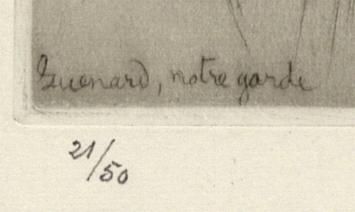 Guenard, notre garde
21/50